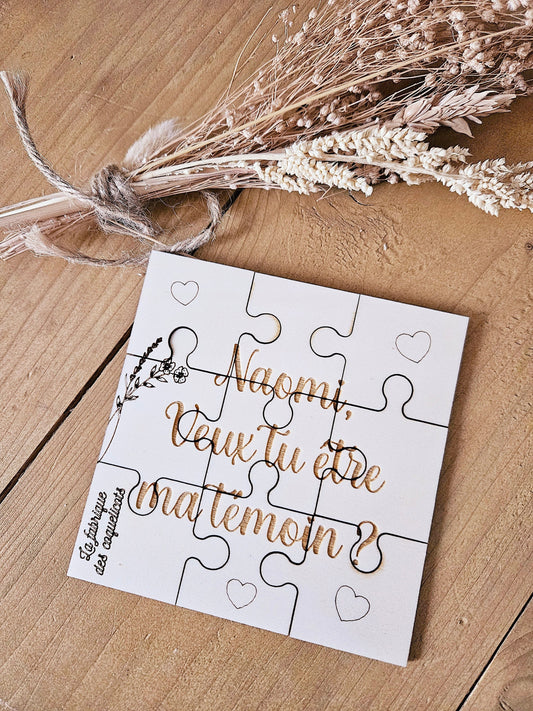 Naomi,
Veux Tu être
ma Témoin ?
La fabrique
des coquelicots